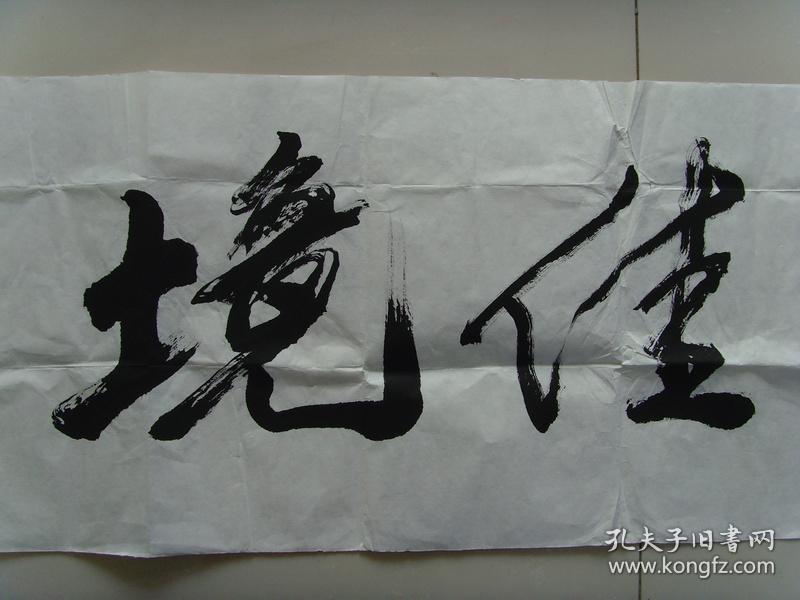 佳境
孔夫子旧書网
www.kongfz.com